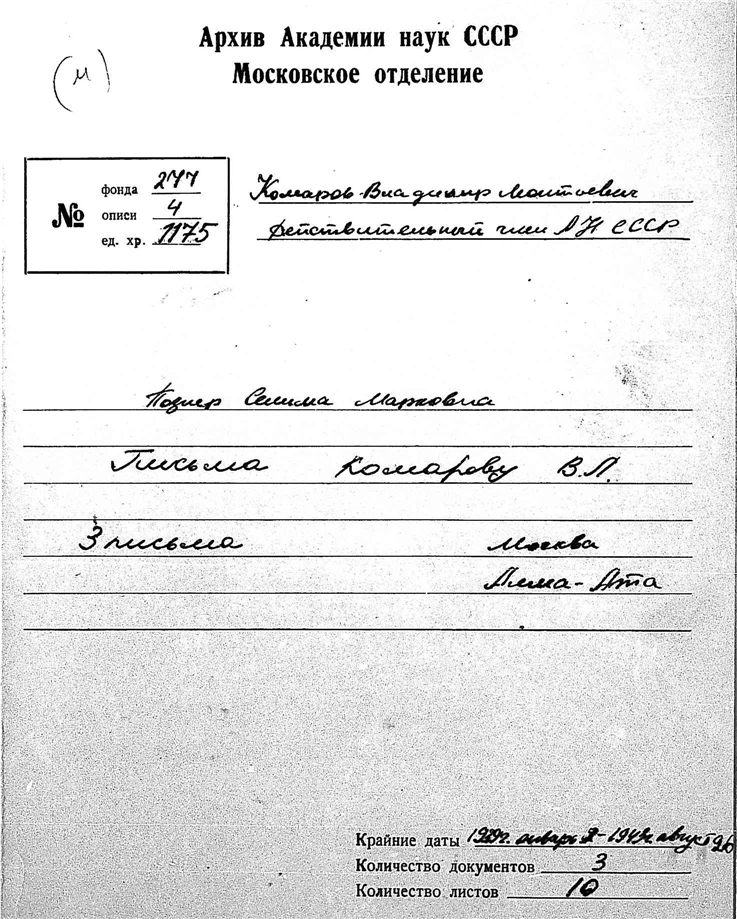 Архив Академии наук СССР
Московское отделение
(м)
№
фонда 277
описи 4
ед. хр. 1175
Комаров Владимир Леонтьевич
действительный член АН СССР
Познер Селима Марковна
Письма Комарову В.Л.
3 письма Москва
Алма-Ата
Крайние даты январь - 1943г. август 26
Количество документов 3
Количество листов 10